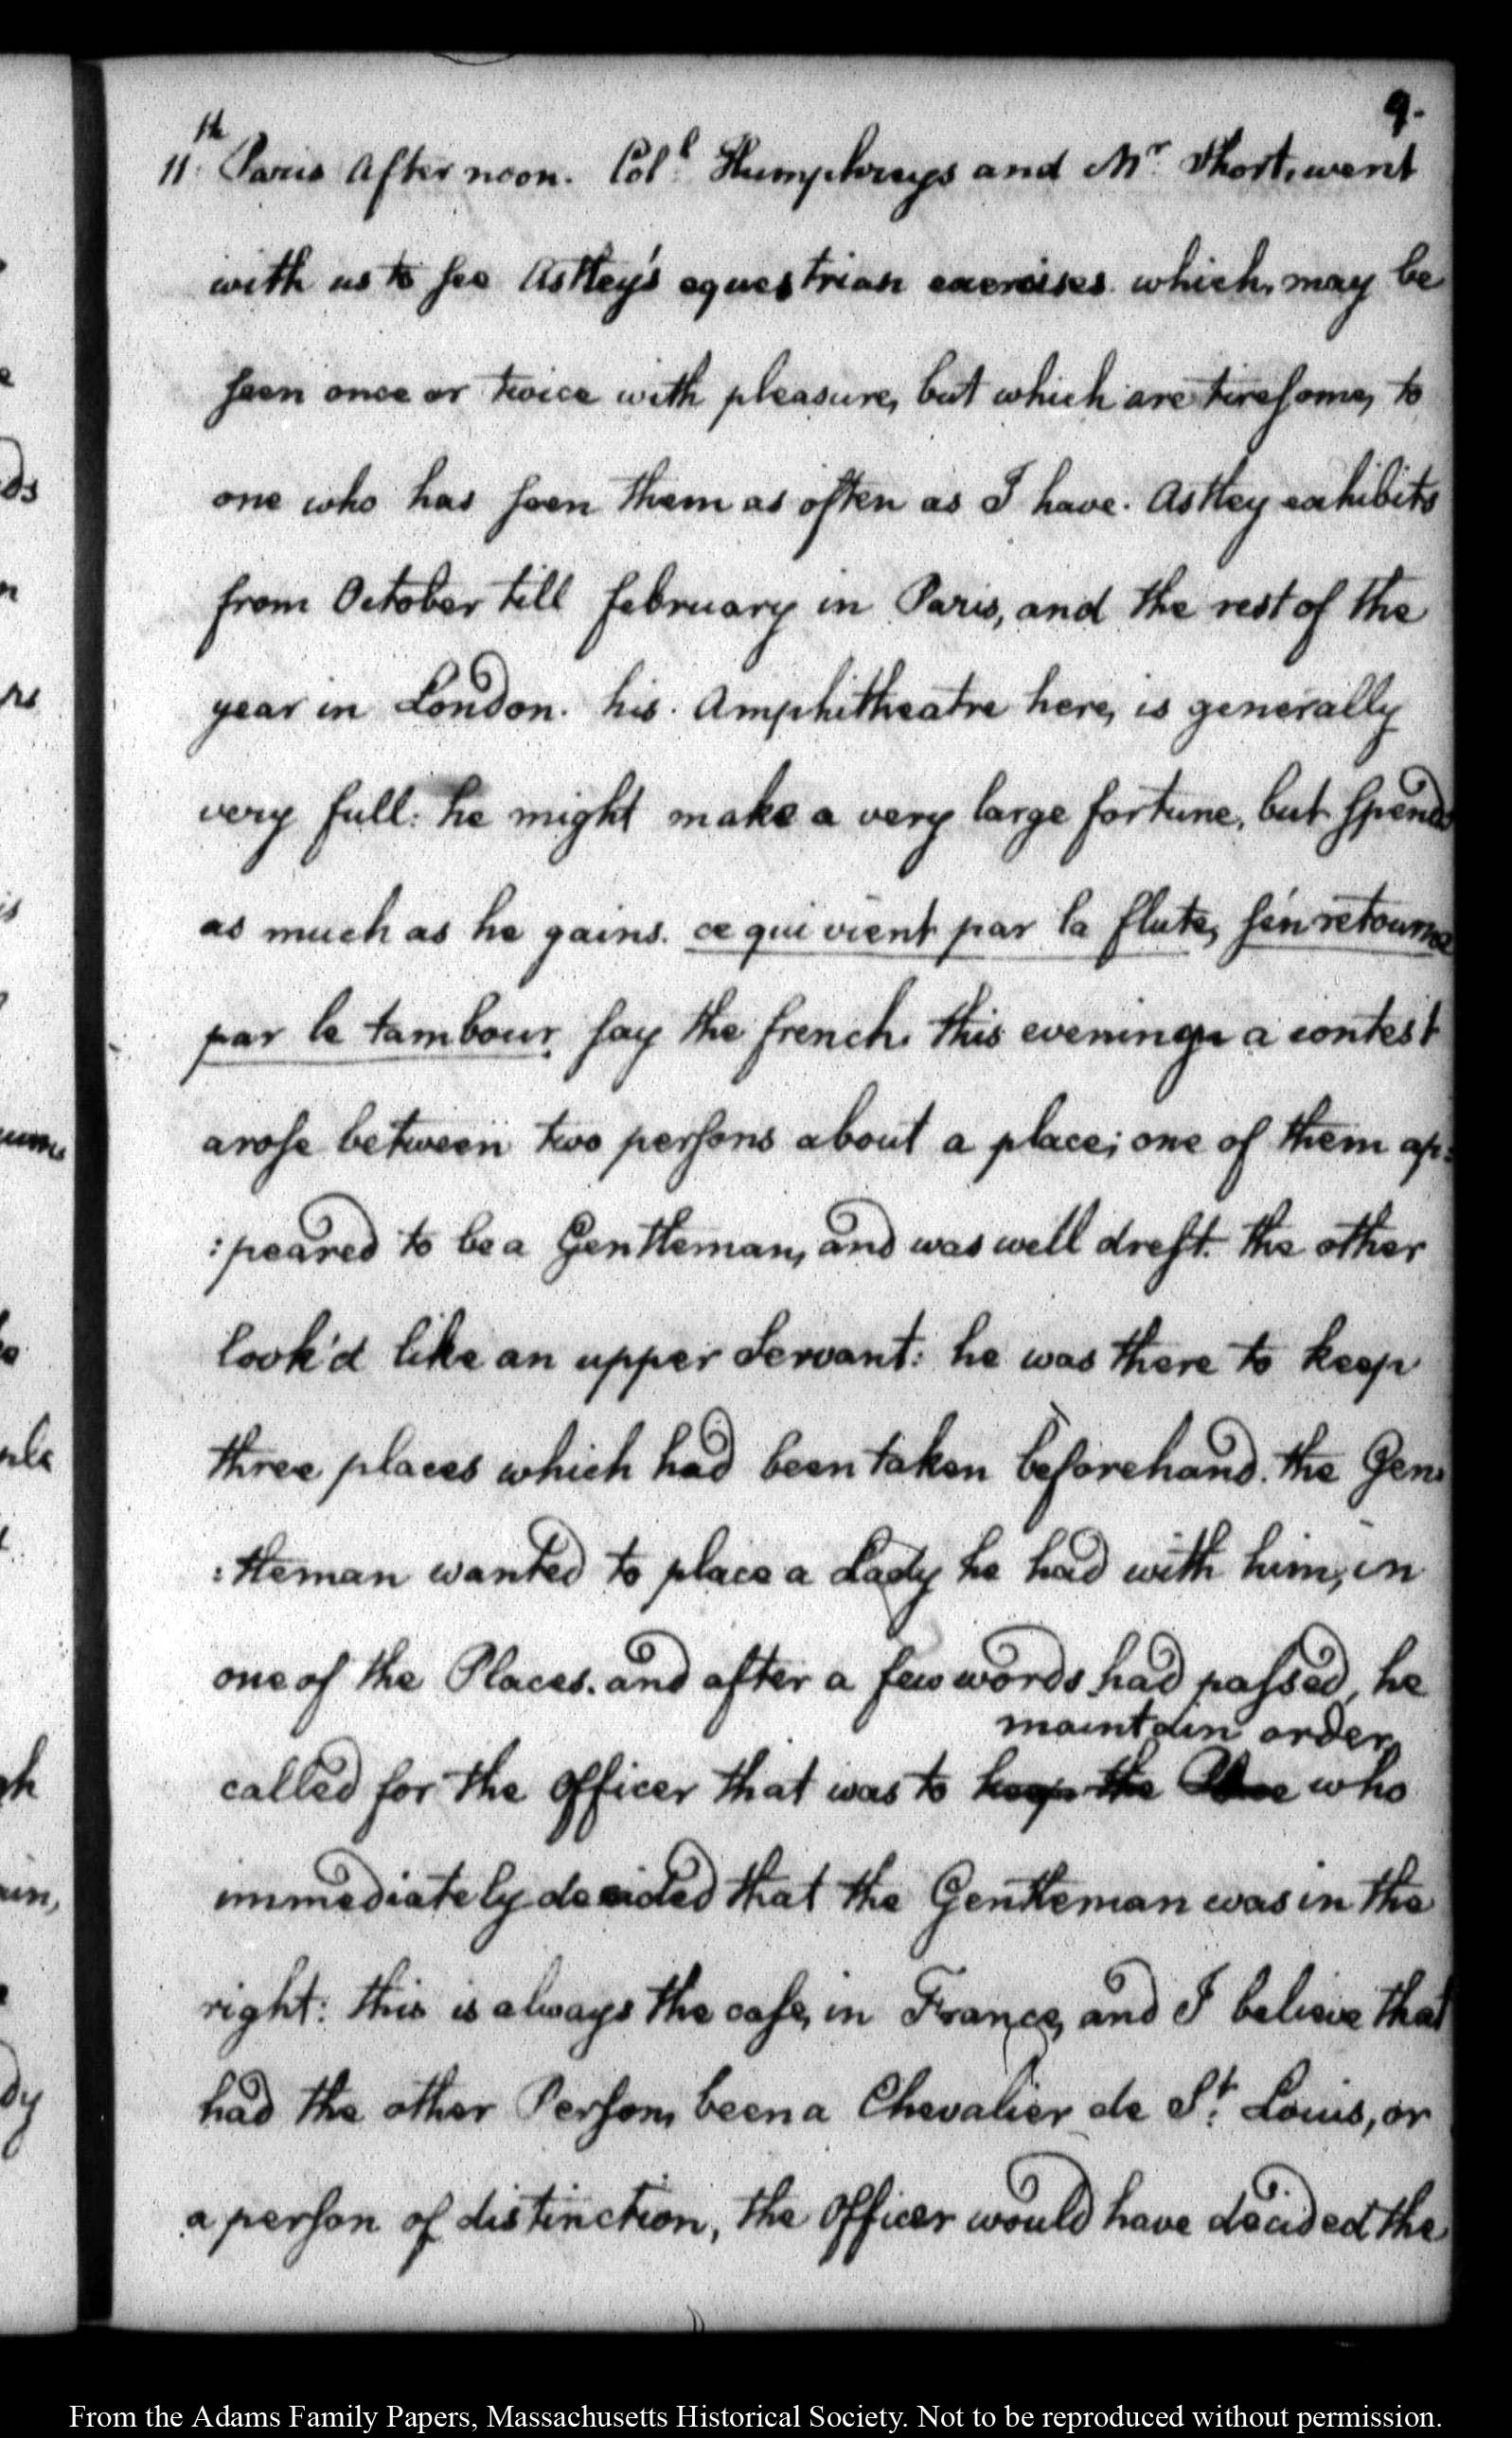 9.
11th Paris afternoon. Coll. Humphreys and Mr. Short, went
with us to see Astley's equestrian exercises which, may be
seen once or twice with pleasure, but which are tiresome, to
one who has seen them as often as I have. Astley exhibits
from October till february in Paris, and the rest of the
year in London. his Amphitheatre here, is generally
very full: he might make a very large fortune, but spends
as much as he gains. ce qui vient par la flute, s'en retourne
par le tambour, say the french. this evening a contest
arose between two persons about a place; one of them ap:
:peared to be a Gentleman, and was well drest. the other
look'd like an upper Servant: he was there to keep
three places which had been taken beforehand. the Gen:
:tleman wanted to place a Lady he had with him, in
one of the Places. and after a few words had passed, he
maintain order,
called for the officer that was to keep the who
immediately decided that the Gentleman was in the
right: this is always the case, in France, and I believe that
had the other Person, been a Chevalier de St. Louis, or
a person of distinction, the officer would have decided the
ds
rs
is
gh
dy
From the Adams Family Papers, Massachusetts Historical Society. Not to be reproduced without permission.